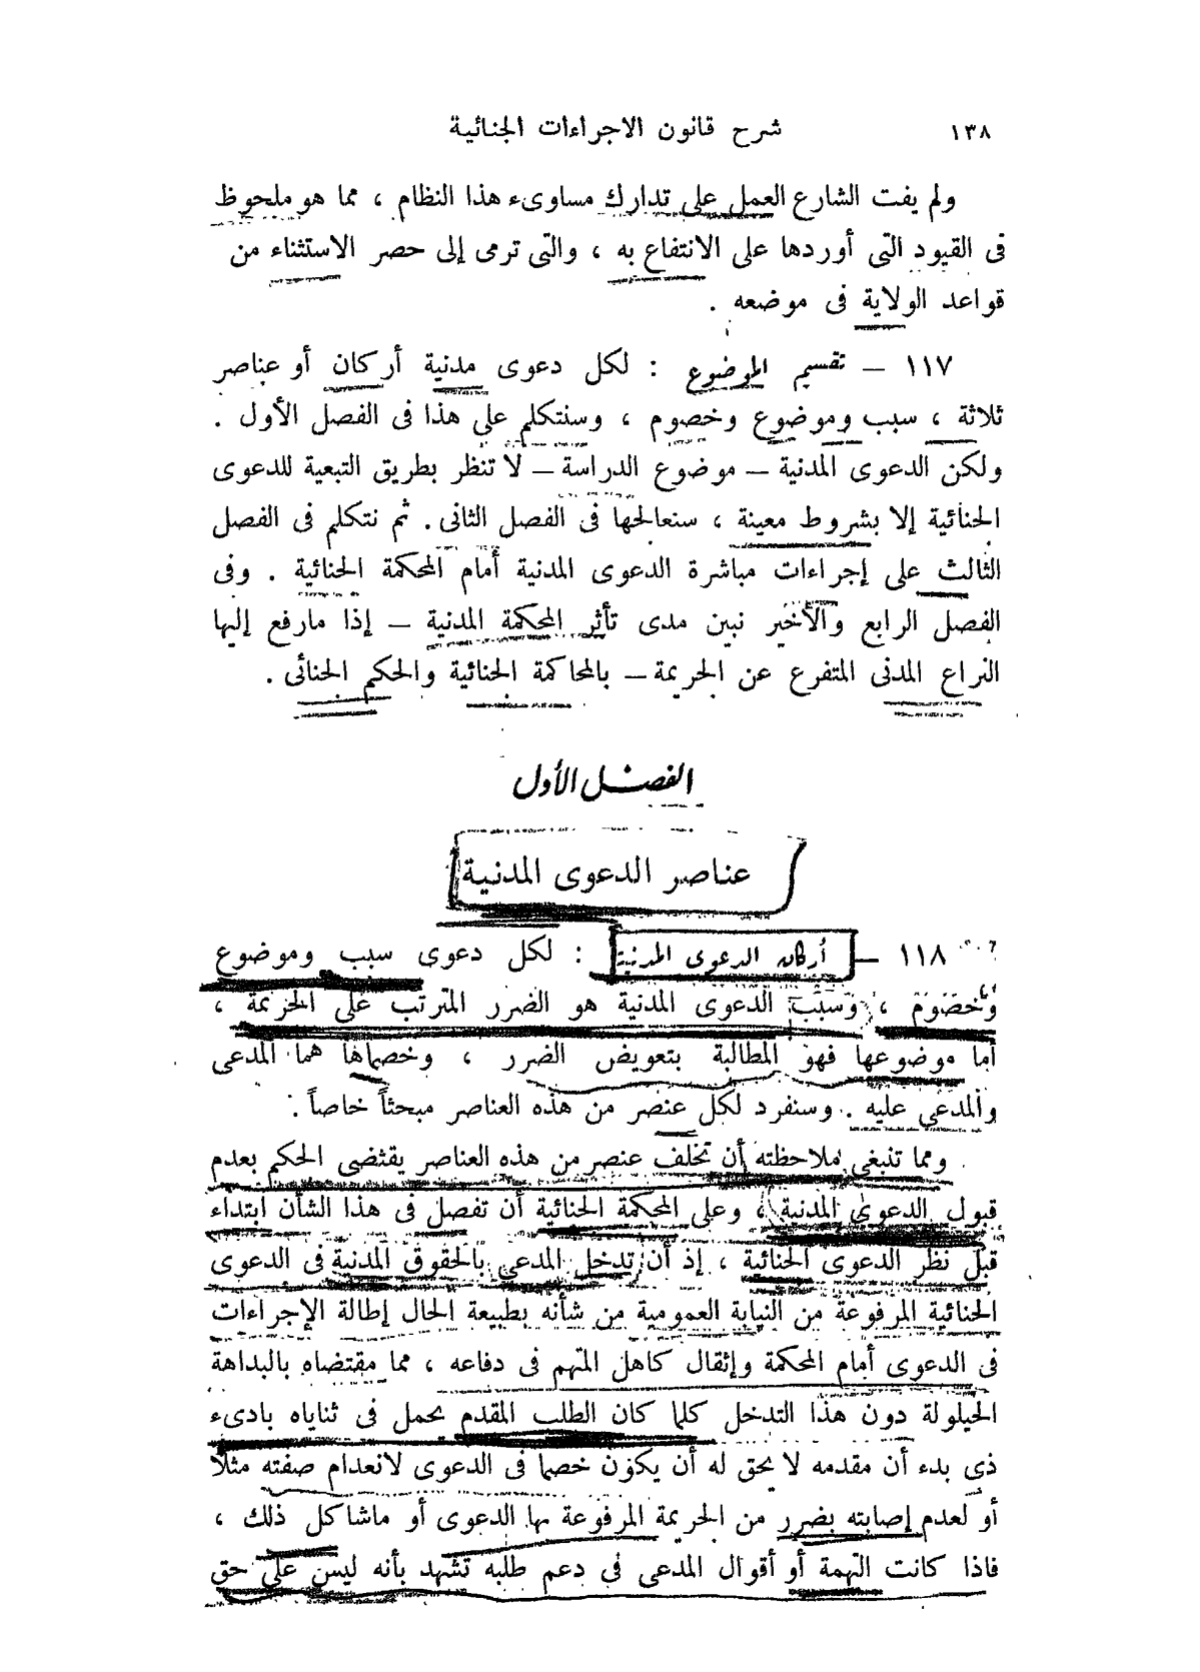 ١٣٨ شرح قانون الاجراءات الجنائية
ولم يفت الشارع العمل على تدارك مساوىء هذا النظام ، مما هو ملحوظ
فى القيود التى أوردها على الانتفاع به ، والتى ترمى إلى حصر الاستثناء من
قواعد الولاية فى موضعه .
١١٧ — تقسيم الموضوع : لكل دعوى مدنية أركان أو عناصر
ثلاثة ، سبب وموضوع وخصوم ، وسنتكلم على هذا فى الفصل الأول .
ولكن الدعوى المدنية — موضوع الدراسة — لا تنظر بطريق التبعية للدعوى
الجنائية إلا بشروط معينة ، سنعالجها فى الفصل الثانى . ثم نتكلم فى الفصل
الثالث على إجراءات مباشرة الدعوى المدنية أمام المحكمة الجنائية . وفى
الفصل الرابع والأخير نبين مدى تأثر المحكمة المدنية — إذا مارفع إليها
النزاع المدنى المتفرع عن الجريمة — بالمحاكمة الجنائية والحكم الجنائى .
الفصل الأول
عناصر الدعوى المدنية
١١٨ — أركان الدعوى المدنية : لكل دعوى سبب وموضوع
وخصوم ، وسبب الدعوى المدنية هو الضرر المترتب على الجريمة ،
أما موضوعها فهو المطالبة بتعويض الضرر ، وخصماها هما المدعى
والمدعى عليه . وسنفرد لكل عنصر من هذه العناصر مبحثاً خاصاً .
ومما تنبغى ملاحظته أن تخلف عنصر من هذه العناصر يقتضى الحكم بعدم
قبول الدعوى المدنية ، وعلى المحكمة الجنائية أن تفصل فى هذا الشأن ابتداء
قبل نظر الدعوى الجنائية ، إذ أن تدخل المدعى بالحقوق المدنية فى الدعوى
الجنائية المرفوعة من النيابة العمومية من شأنه بطبيعة الحال إطالة الإجراءات
فى الدعوى أمام المحكمة وإثقال كاهل المتهم فى دفاعه ، مما مقتضاه بالبداهة
الحيلولة دون هذا التدخل كلما كان الطلب المقدم يحمل فى ثناياه بادىء
ذى بدء أن مقدمه لا يحق له أن يكون خصما فى الدعوى لانعدام صفته مثلا
أو لعدم إصابته بضرر من الجريمة المرفوعة بها الدعوى أو ماشاكل ذلك ،
فاذا كانت التهمة أو أقوال المدعى فى دعم طلبه تشهد بأنه ليس على حق